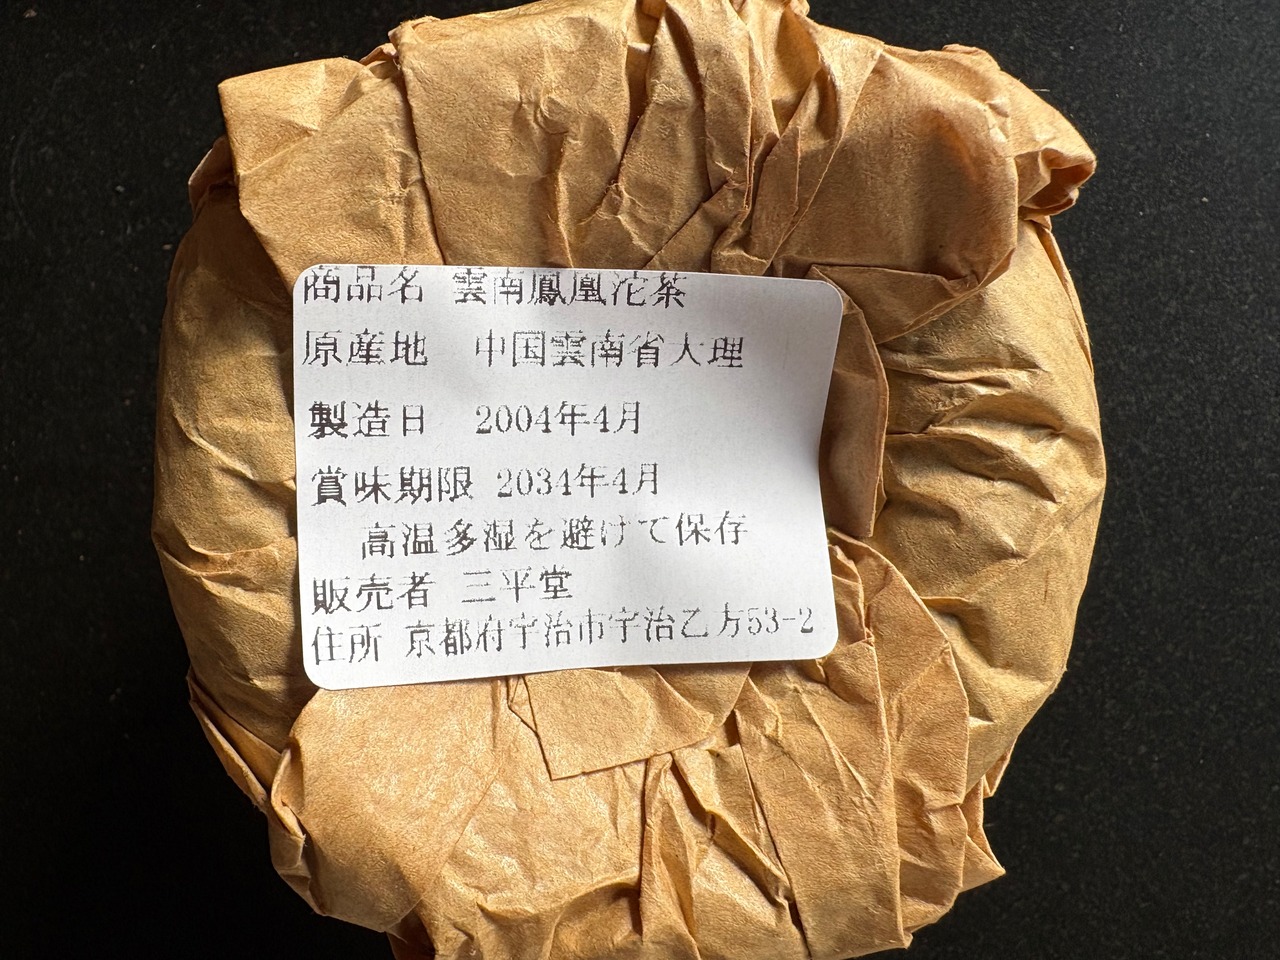 商品名 雲南鳳凰沱茶
原産地 中国雲南省大理
製造日 2004年4月
賞味期限 2034年4月
高温多湿を避けて保存
販売者 三平堂
住所 京都府宇治市宇治乙方53-2